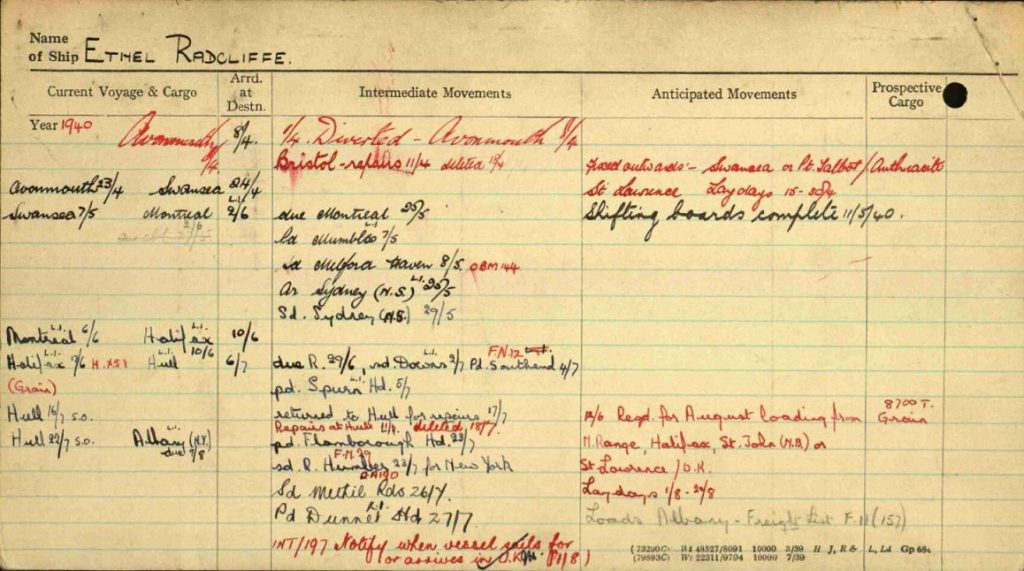 Name
of Ship ETHEL RADCLIFFE.
Current Voyage & Cargo Arrd. at Destn. Intermediate Movements Anticipated Movements Prospective Cargo
Year 1940 Avonmouth 8/4. 1/4. Diverted - Avonmouth
Bristol - repairs 11/4 deleted Fixed outwards:- Swansea or Pt. Talbot / Anthracite
Avonmouth 23/4 Swansea 24/4 St Lawrence Laydays
Swansea 7/5 Montreal 2/6 due Montreal 25/5 Shifting boards complete 11/5/40.
Mumbles 7/5
Sd Milford Haven 8/5. OBM 144
Ar Sydney (N.S.) L.I. 25/5
Sd. Sydney (N.S.) 29/5
Montreal L.I. 6/6 Halifax L.I. 10/6
Halifax H.X51 Hull 6/7 due R. 29/6, sd. Downs L.I. 2/7 F.N.12 Pd. Southend 4/7
(Grain) pd. Spurn Hd. 5/7
Hull 16/7 s.o. returned to Hull for repairs 17/7 12/6 Reqd. for August loading from 8700 T. Grain
Repairs at Hull deleted 18/7.
Hull 22/7 s.o. Albany (N.Y.) due pd. Flamborough Hd. 23/7 N. Range, Halifax, St. John (N.B.) or
sd. R. Humber 22/7 for New York St Lawrence / U.K.
Sd Methil Rds 26/7. OA190 Laydays 1/8 - 20/8
Pd Dunnet Hd 27/7 Loads Albany - Freight List F.11 (157)
INT/197 Notify when vessel sails for
or arrives in U.K.
(73200C) Wt 48527/8091 10000 3/39 H J, R & L, Ld Gp 684
(79893C) Wt 22311/9794 10000 7/39